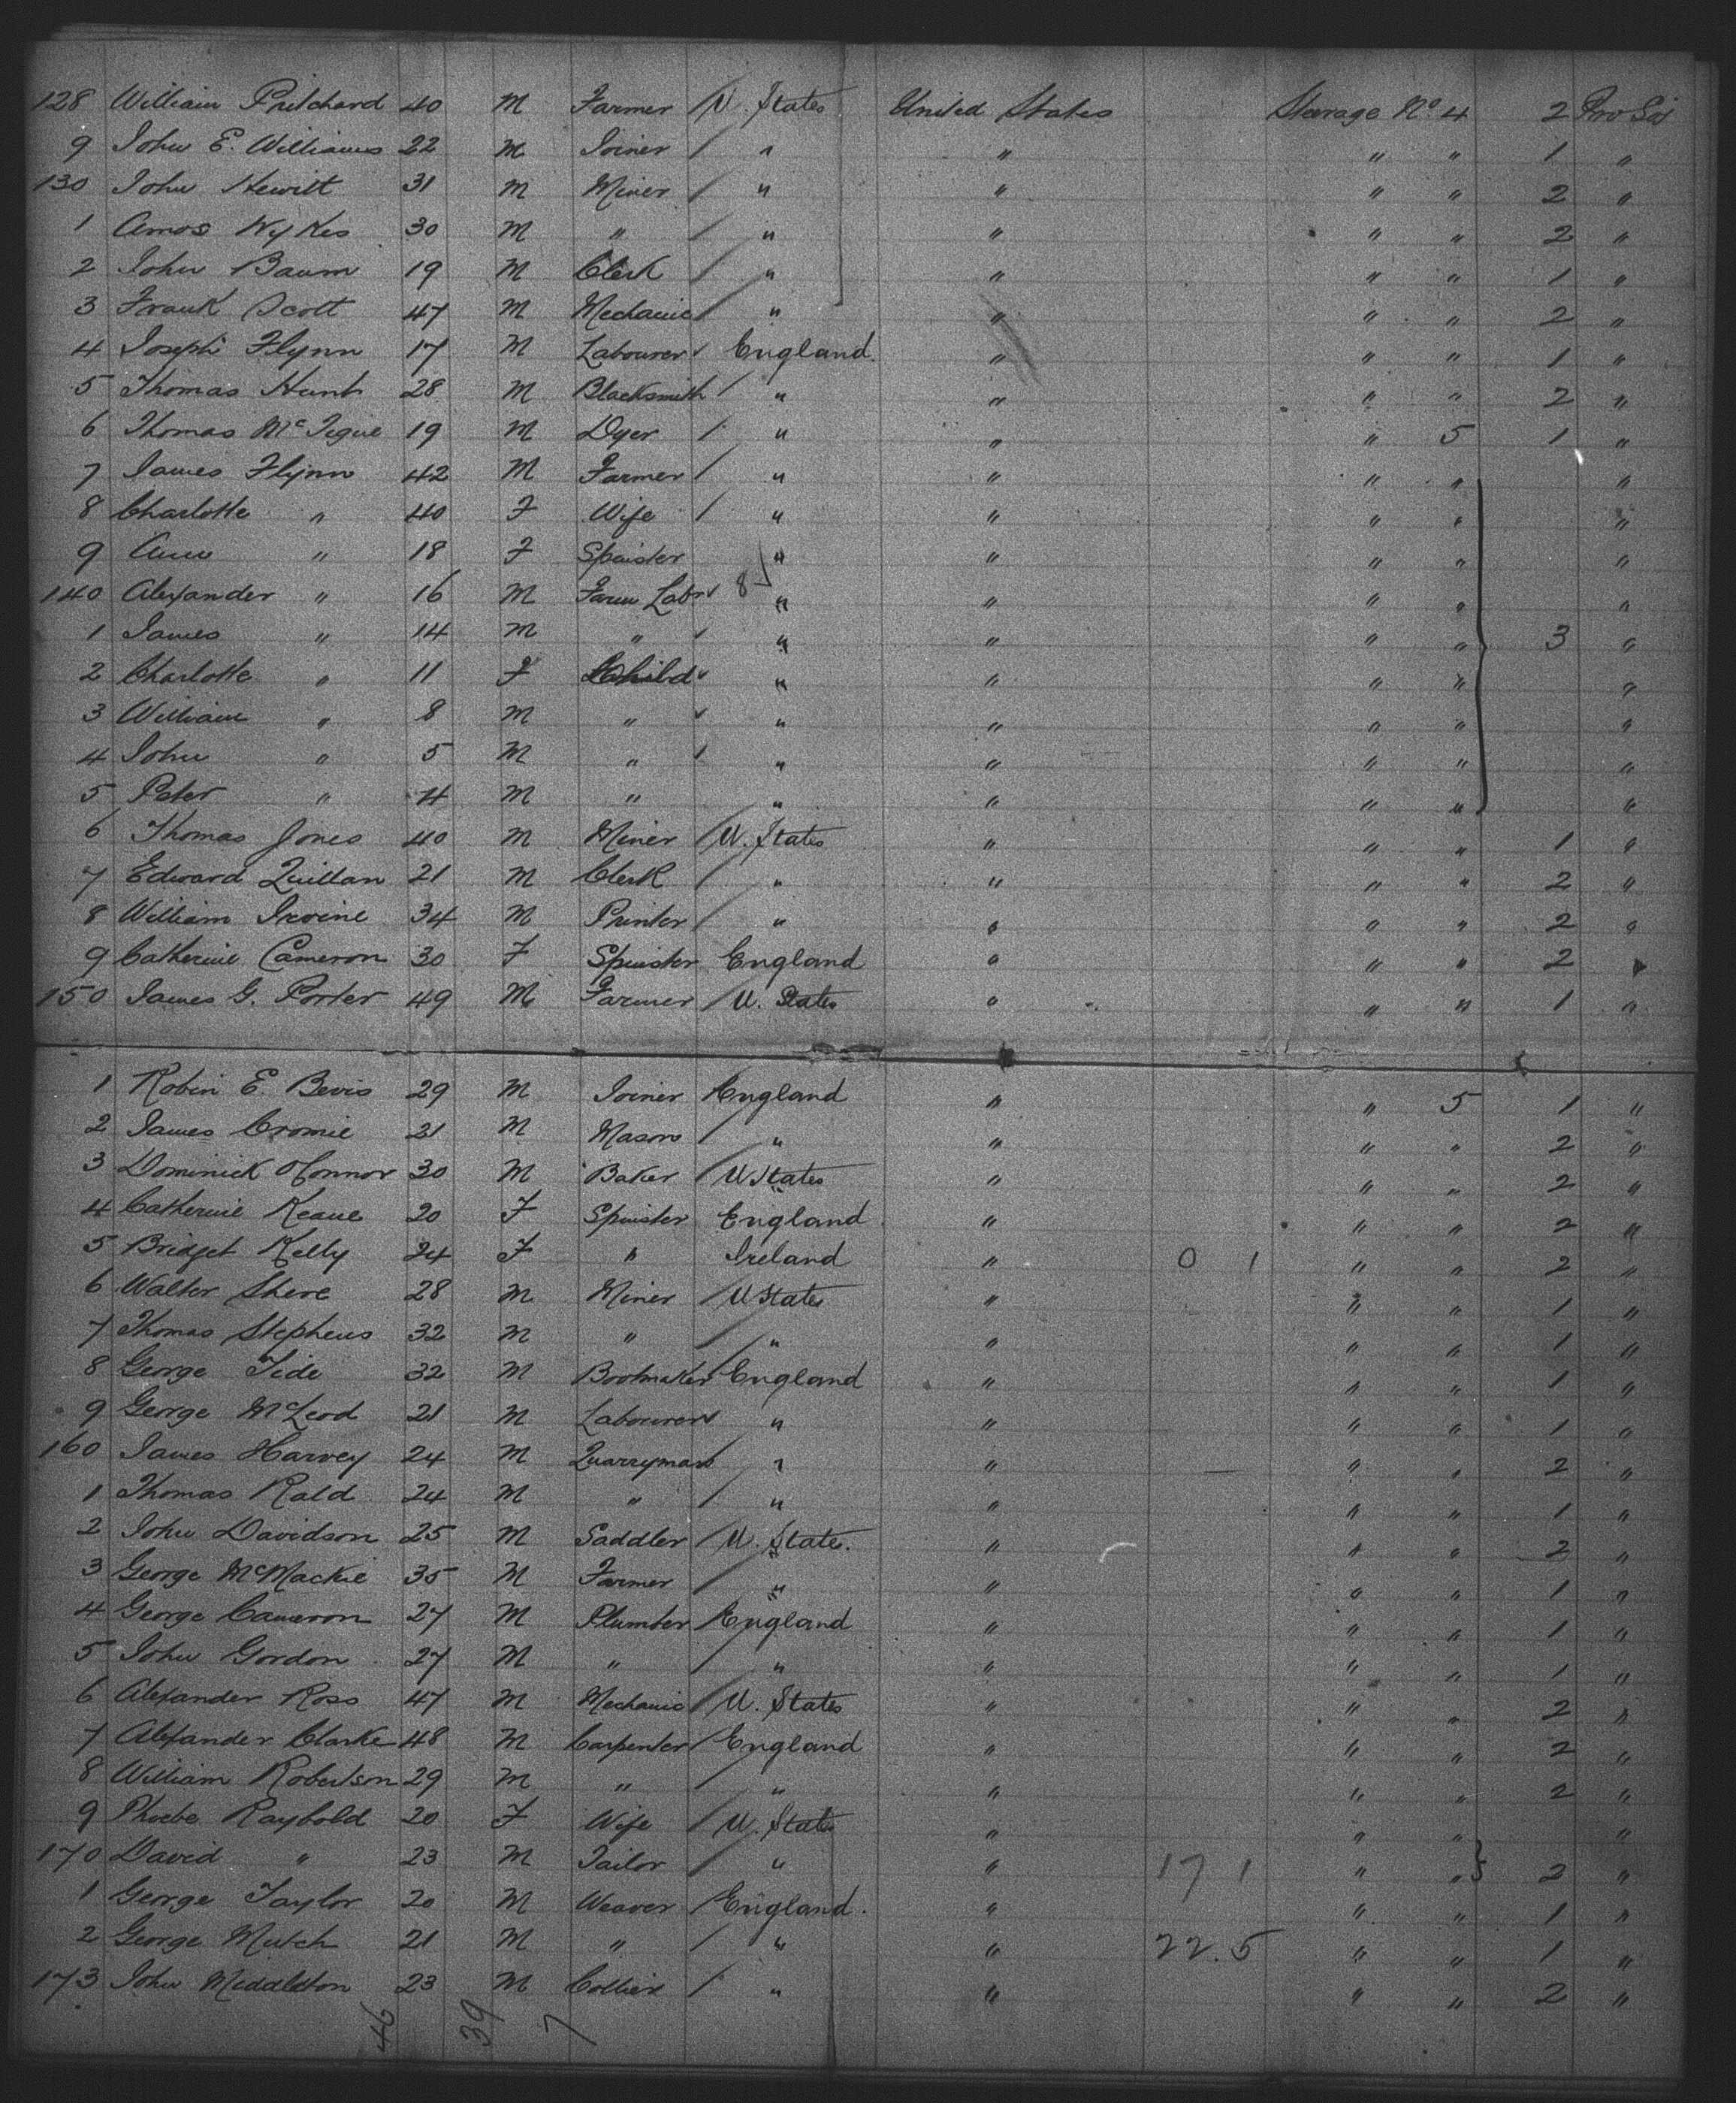 128 William Pritchard 40 M Farmer / U. States United States Steerage No. 4 2 Pro Soj
9 John E. Williams 22 M Joiner / " " " " 1 "
130 John Hewitt 31 M Miner / " " " " 2 "
1 Amos Wykes 30 M " / " " " " 2 "
2 John Baum 19 M Clerk / " " " " 1 "
3 Frank Scott 47 M Mechanic / " " " " 2 "
4 Joseph Flynn 17 M Labourer England " " " 1 "
5 Thomas Hunt 28 M Blacksmith / " " " " 2 "
6 Thomas McTigue 19 M Dyer / " " " 5 1 "
7 James Flynn 42 M Farmer / " " " " "
8 Charlotte " 40 F Wife / " " " " "
9 Ann " 18 F Spinster " " " " "
140 Alexander " 16 M Farm Labr 8 " " " " "
1 James " 14 M " " " " " 3 "
2 Charlotte " 11 F Child " " " " "
3 William " 8 M " " " " " "
4 John " 5 M " " " " " "
5 Peter " 4 M " " " " " "
6 Thomas Jones 40 M Miner / U. States " " " 1 "
7 Edward Quillan 21 M Clerk / " " " " 2 "
8 William Irvine 34 M Printer / " " " " 2 "
9 Catherine Cameron 30 F Spinster England " " " 2 "
150 James G. Porter 49 M Farmer / U. States " " " 1 "
1 Robin E. Bevis 29 M Joiner / England " " 5 1 "
2 James Cromie 21 M Mason / " " " " 2 "
3 Dominick O'Connor 30 M Baker / U States " " " 2 "
4 Catherine Keane 20 F Spinster England " " " 2 "
5 Bridget Kelly 24 F " Ireland " 0 1 " " 2 "
6 Walter Shere 28 M Miner / U States " " " 1 "
7 Thomas Stephens 32 M " / " " " " 1 "
8 George Tide 32 M Bootmaker England " " " 1 "
9 George McLeod 21 M Labourer " " " " 1 "
160 James Harvey 24 M Quarryman " " " " 2 "
1 Thomas Rald 24 M " / " " " " 1 "
2 John Davidson 25 M Saddler / U. State. " " " 2 "
3 George McMackie 35 M Farmer / " " " " 1 "
4 George Cameron 27 M Plumber / England " " " 1 "
5 John Gordon 27 M " / " " " " 1 "
6 Alexander Ross 47 M Mechanic / U. States " " " 2 "
7 Alexander Clarke 48 M Carpenter / England " " " 2 "
8 William Robertson 29 M " / " " " " 2 "
9 Phoebe Raybold 20 F Wife / U. States " " " "
170 David " 23 M Tailor / " " 17 1 " " 2 "
1 George Taylor 20 M Weaver / England. " " " 1 "
2 George Mutch 21 M " / " " 22.5 " " 1 "
173 John Middleton 23 M Collier / " " " " 2 "
46 39 7